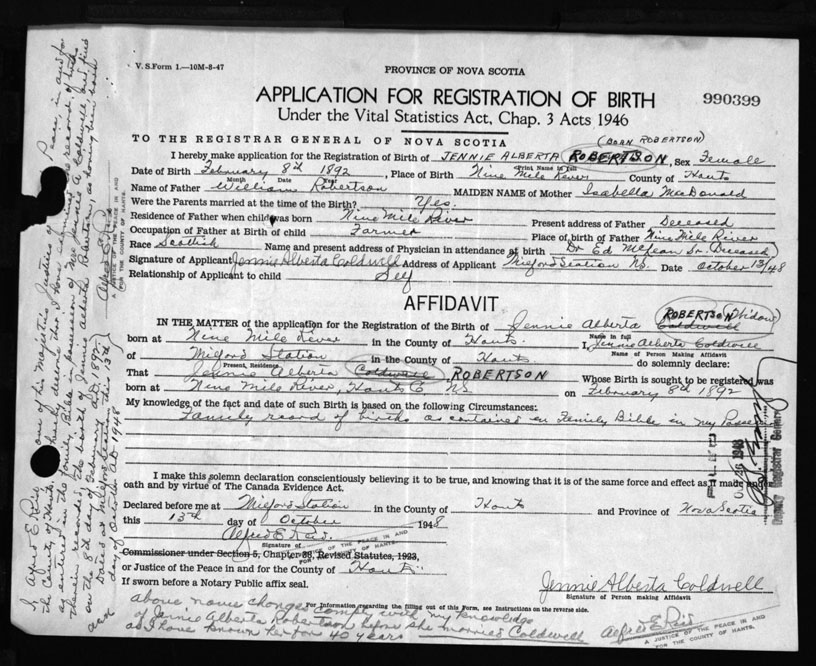 V. S. Form 1.—10M-8-47
PROVINCE OF NOVA SCOTIA
APPLICATION FOR REGISTRATION OF BIRTH
990399
Under the Vital Statistics Act, Chap. 3 Acts 1946
(BORN ROBERTSON)
TO THE REGISTRAR GENERAL OF NOVA SCOTIA
I hereby make application for the Registration of Birth of JENNIE ALBERTA ROBERTSON, Sex Female
Print Name in full
Date of Birth February 8th 1892, Place of Birth Nine Mile River County of Hants
Month Day Year
Name of Father William Robertson MAIDEN NAME of Mother Isabella McDonald
Were the Parents married at the time of the Birth? Yes.
Residence of Father when child was born Nine Mile River Present address of Father Deceased
Occupation of Father at Birth of child Farmer Place of birth of Father Nine Mile River
Race Scottish Name and present address of Physician in attendance at birth Dr Ed McLean Sr Deceased
Signature of Applicant Jennie Alberta Coldwell Address of Applicant Milford Station N.S. Date October 13/48
Relationship of Applicant to child Self
AFFIDAVIT
ROBERTSON (Widow)
IN THE MATTER of the application for the Registration of Birth of Jennie Alberta Coldwell
Name in full
born at Nine Mile River in the County of Hants I, Jennie Alberta Coldwell
Name of Person Making Affidavit
of Milford Station in the County of Hants do solemnly declare:
Present Residence
That Jennie Alberta Coldwell ROBERTSON Whose Birth is sought to be registered was
born at Nine Mile River, Hants Co NS. on February 8th 1892
My knowledge of the fact and date of such Birth is based on the following Circumstances:
Family record of births as contained in Family Bible in my Possession
I make this solemn declaration conscientiously believing it to be true, and knowing that it is of the same force and effect as if made under
oath and by virtue of The Canada Evidence Act.
Declared before me at Milford Station in the County of Hants and Province of Nova Scotia
this 13th day of October 1948
Alfred E. Reid.
Signature of
A JUSTICE OF THE PEACE IN AND
FOR THE COUNTY OF HANTS.
Commissioner under Section 5, Chapter 39, Revised Statutes, 1923,
or Justice of the Peace in and for the County of Hants
If sworn before a Notary Public affix seal.
Jennie Alberta Coldwell
Signature of Person making Affidavit
For Information regarding the filling out of this Form, see Instructions on the reverse side.
above name changes comply with my knowledge
of Jennie Alberta Robertson before she married Coldwell
as I have known her for 40 years
Alfred E Reid
A JUSTICE OF THE PEACE IN AND
FOR THE COUNTY OF HANTS.
FILED
Deputy Registrar General
I, Alfred E Reid one of his Majestys Justices of the Peace, in and for
the County of Hants, hereby declare, that I have examined the record, of births
as entered in the family Bible in possession of Mrs Jennie A. Coldwell, and find
therein recorded, the birth of Jennie Alberta Robertson, as having been born
on the 8th day of February A.D. 1892.
Dated at Milford Station this 13th
day of October AD 1948
Alfred E Reid
A JUSTICE OF THE PEACE IN AND
FOR THE COUNTY OF HANTS.